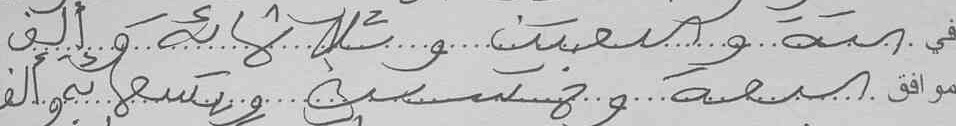 في ستة و سبعين و ثلاثمائة و ألف
موافق سبعة و خمسين و تسعمائة وألف